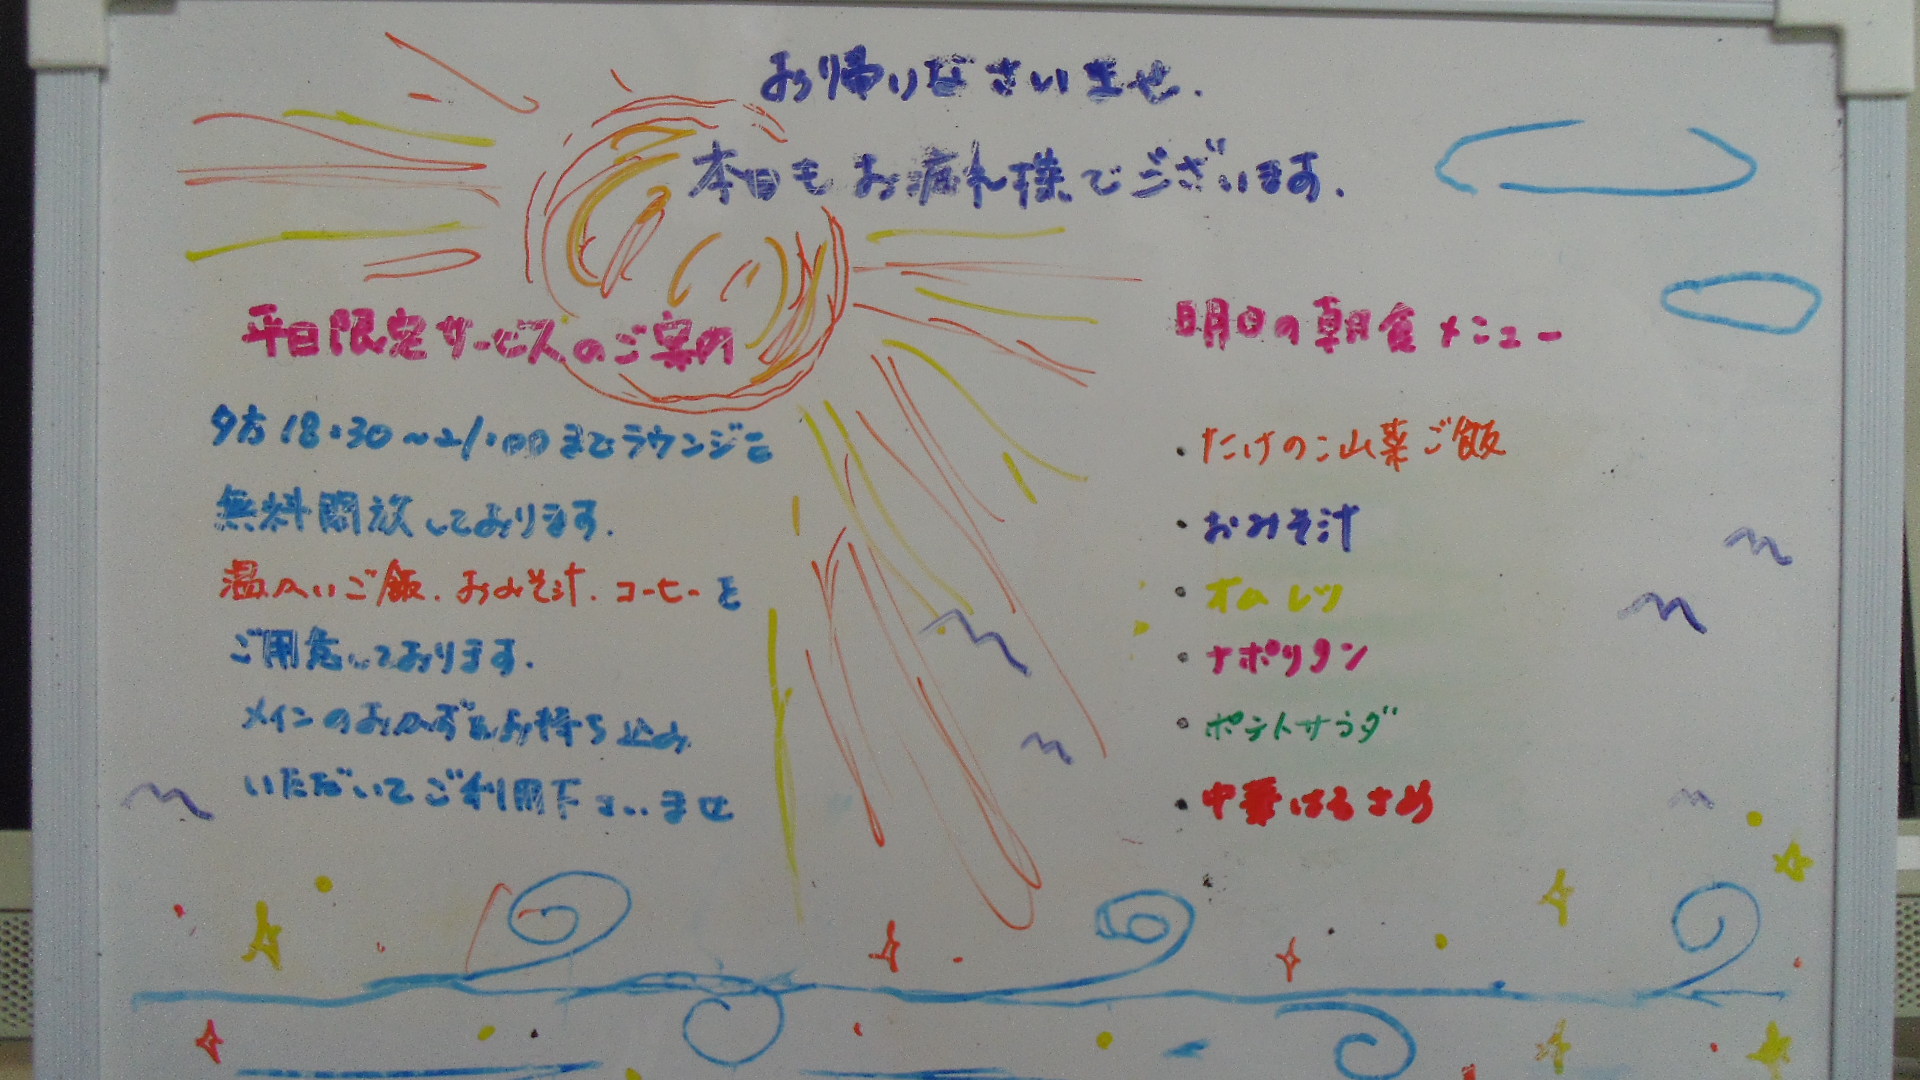 お帰りなさいませ.
本日もお疲れ様でございます.
平日限定サービスのご案内
夕方18:30~21:00までラウンジを
無料開放しております.
温かいご飯.おみそ汁.コーヒーを
ご用意しております.
メインのおかずをお持ち込み
いただいてご利用下さいませ
明日の朝食メニュー
・たけのこ山菜ご飯
・おみそ汁
・オムレツ
・ナポリタン
・ポテトサラダ
・中華はるさめ